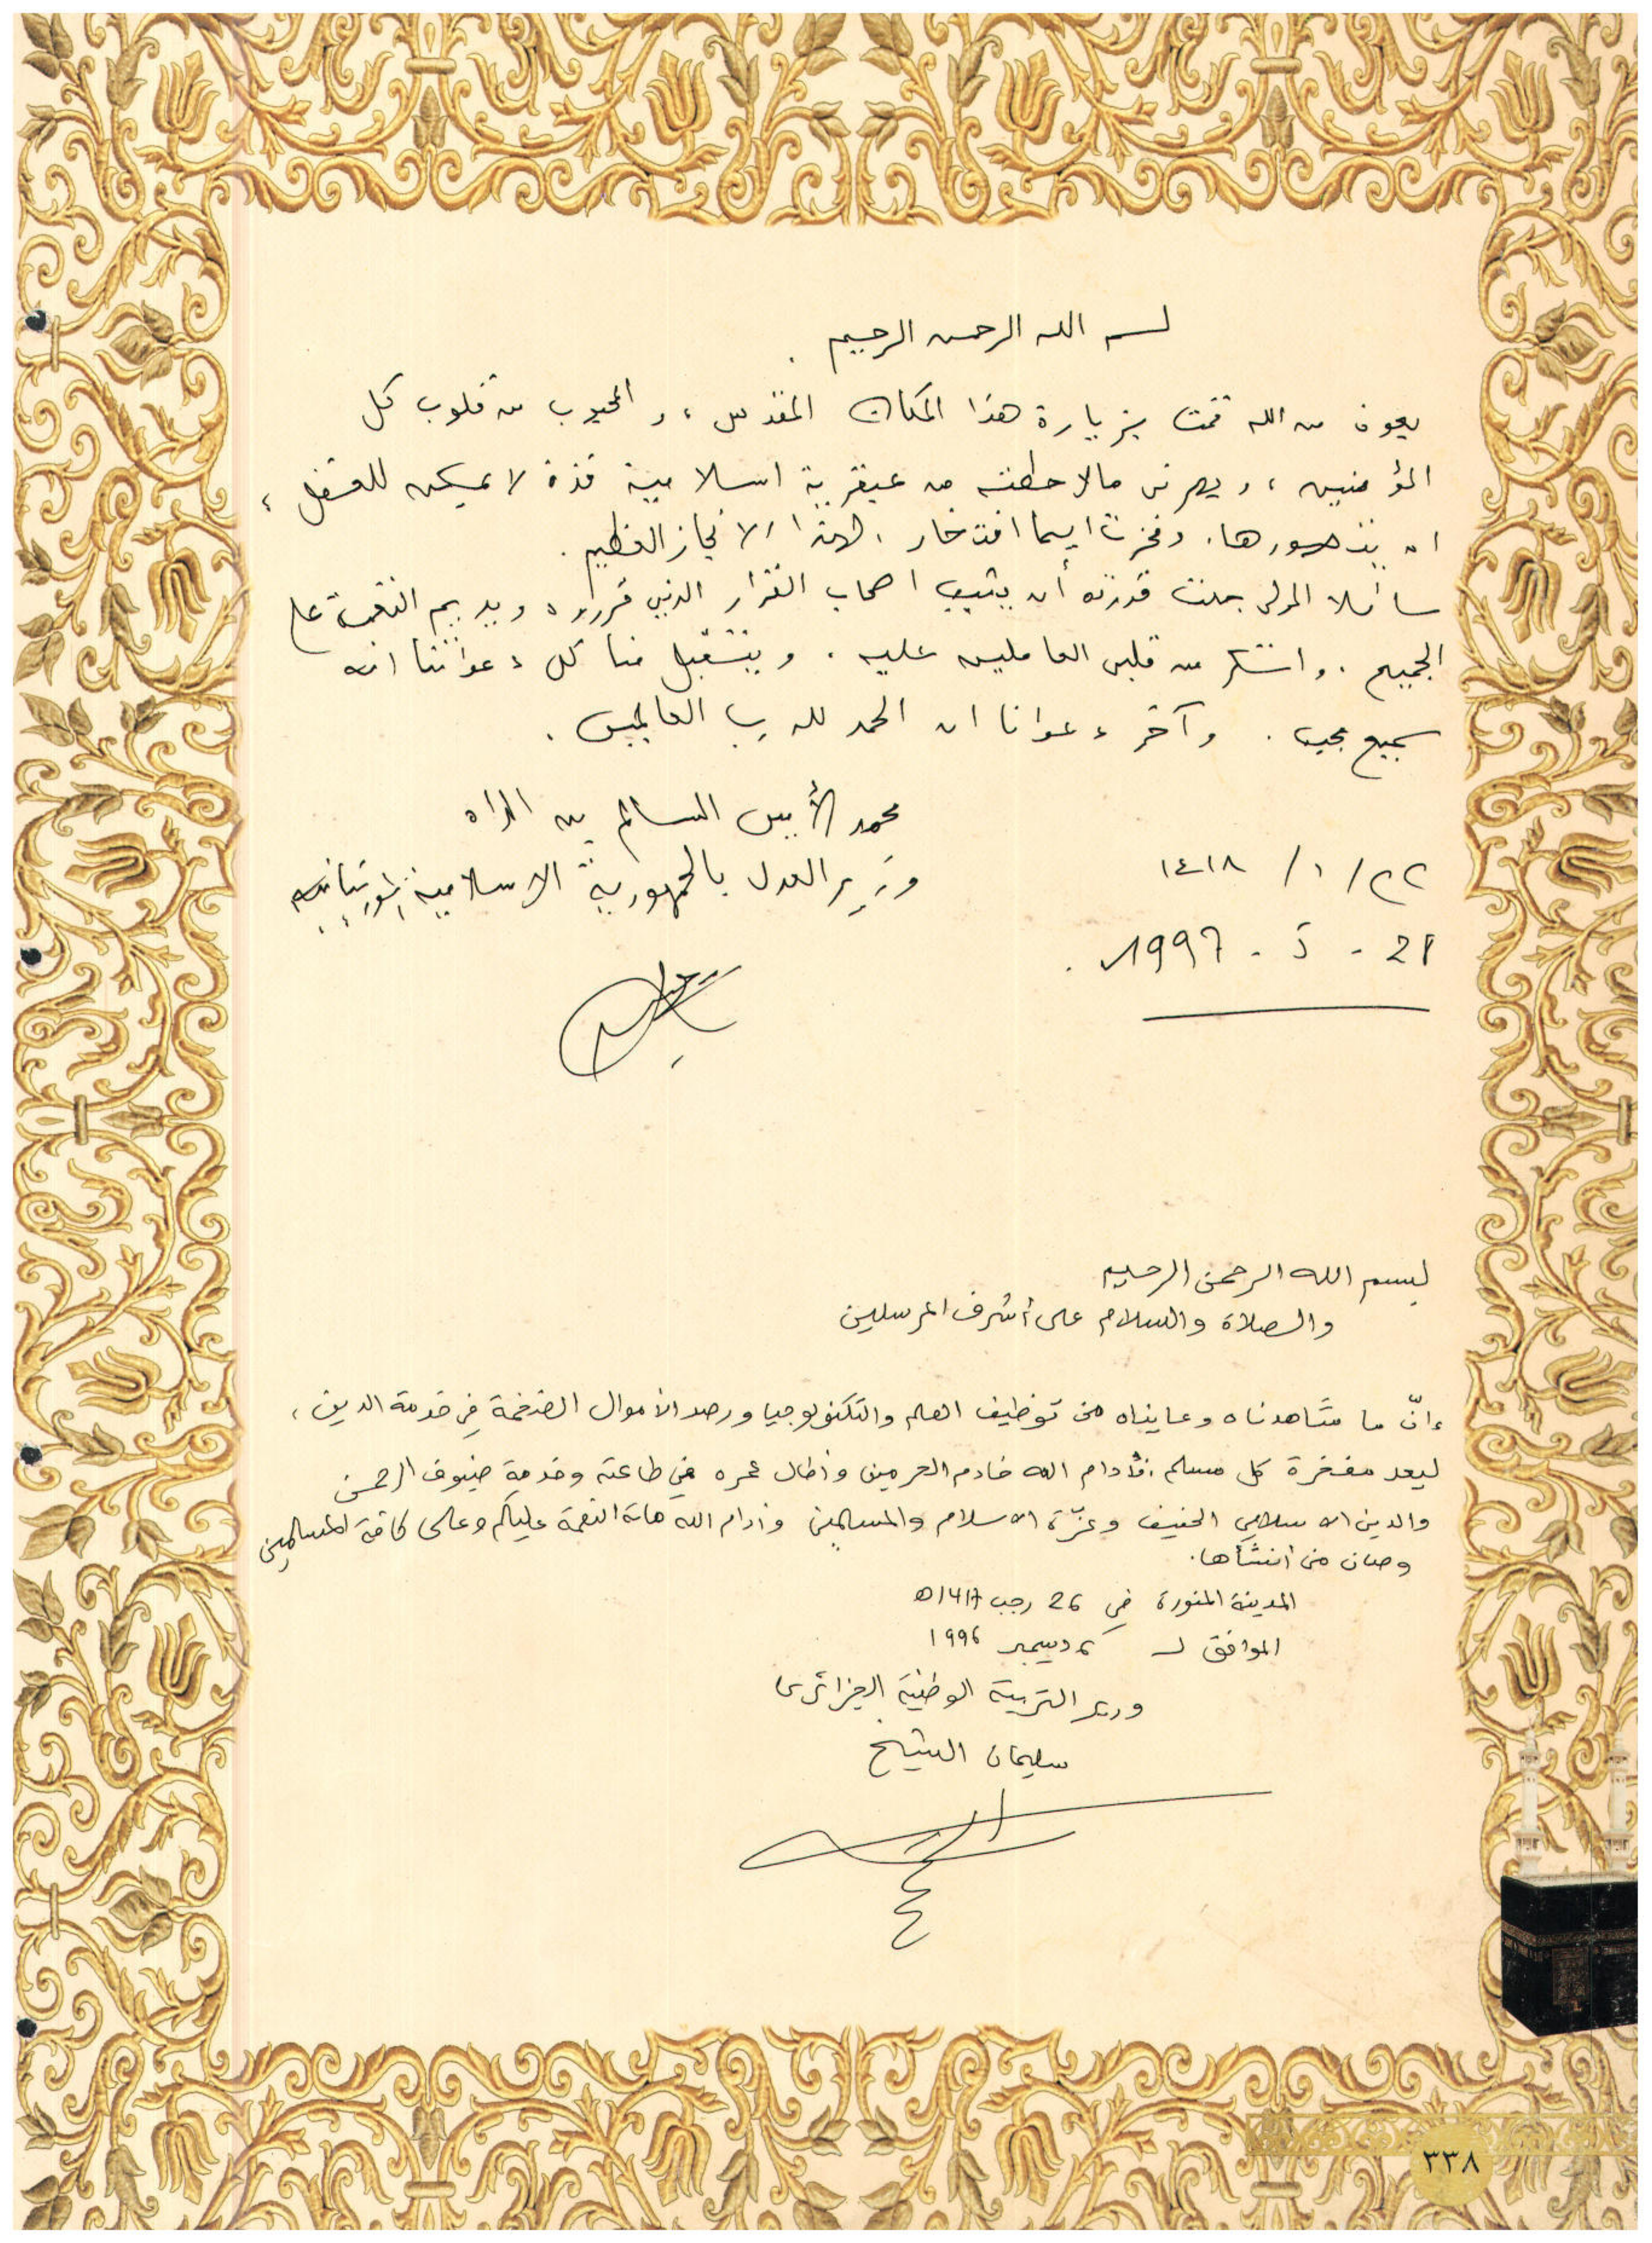 بسم الله الرحمن الرحيم .
بعون من الله قمت بزيارة هذا المكان المقدس ، و المحبوب من قلوب كل
المؤمنين ، و بهرني ما لاحظته من عبقرية اسلامية فذة لا يمكن للعقل ،
ان يتصورها . وفخرت ايما افتخار . لهذا الانجاز العظيم .
سائلا المولى جلت قدرته أن يثيب اصحاب القرار الذين قرروه ويديم النعمة على
الجميع . واشكر من قلبي العاملين عليه . ويتقبل منا كل دعواتنا انه
سميع مجيب . وآخر دعوانا ان الحمد لله رب العالمين .
محمد الأمين السالم بن الداه
وزير العدل بالجمهورية الاسلامية الموريتانية
٢٢ / ١ / ١٤١٨
21 - 5 - 1997 .
بسم الله الرحمن الرحيم
والصلاة والسلام على أشرف المرسلين
إنّ ما شاهدناه وعايناه من توظيف العلم والتكنولوجيا ورصد الأموال الضخمة في خدمة الدين ،
ليعد مفخرة كل مسلم . أدام الله خادم الحرمين وأطال عمره في طاعته وخدمة ضيوف الرحمن
والدين الاسلامي الحنيف وعزّة الاسلام والمسلمين وأدام الله هاته النعمة عليكم وعلى كافة المسلمين
وصان من أنشأها .
المدينة المنورة في 26 رجب 1417ه
الموافق لـ ديسمبر 1996
وزير التربية الوطنية الجزائري
سليمان الشيخ
٣٣٨